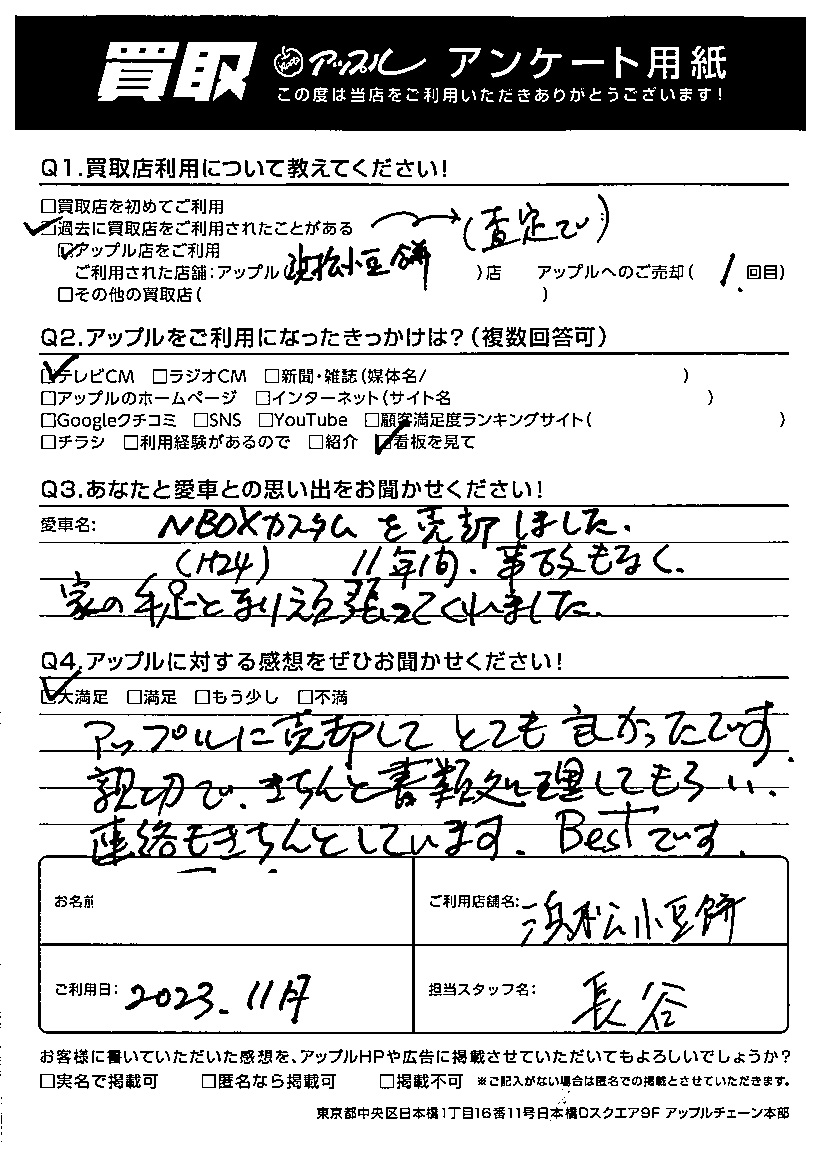 買取 アップル アンケート用紙
この度は当店をご利用いただきありがとうございます!
Q1.買取店利用について教えてください!
□買取店を初めてご利用
☑過去に買取店をご利用されたことがある → (査定で)
☑アップル店をご利用
ご利用された店舗:アップル 浜松小豆餅 )店 アップルへのご売却( 1. 回目)
□その他の買取店( )
Q2.アップルをご利用になったきっかけは?(複数回答可)
☑テレビCM □ラジオCM □新聞・雑誌(媒体名/ )
□アップルのホームページ □インターネット(サイト名 )
□Googleクチコミ □SNS □YouTube □顧客満足度ランキングサイト( )
□チラシ □利用経験があるので □紹介 ☑看板を見て
Q3.あなたと愛車との思い出をお聞かせください!
愛車名: NBOXカスタム を売却しました.
(H24) 11年間、事故もなく、
家の手足となり頑張ってくれました.
Q4.アップルに対する感想をぜひお聞かせください!
☑大満足 □満足 □もう少し □不満
アップルに売却して とても 良かったです.
親切で、きちんと書類処理してもらい、
連絡もきちんとしています. Bestです.
お名前
ご利用店舗名: 浜松小豆餅
ご利用日: 2023. 11月
担当スタッフ名: 長谷
お客様に書いていただいた感想を、アップルHPや広告に掲載させていただいてもよろしいでしょうか?
□実名で掲載可 □匿名なら掲載可 □掲載不可 ※ご記入がない場合は匿名での掲載とさせていただきます。
東京都中央区日本橋1丁目16番11号日本橋Dスクエア9F アップルチェーン本部